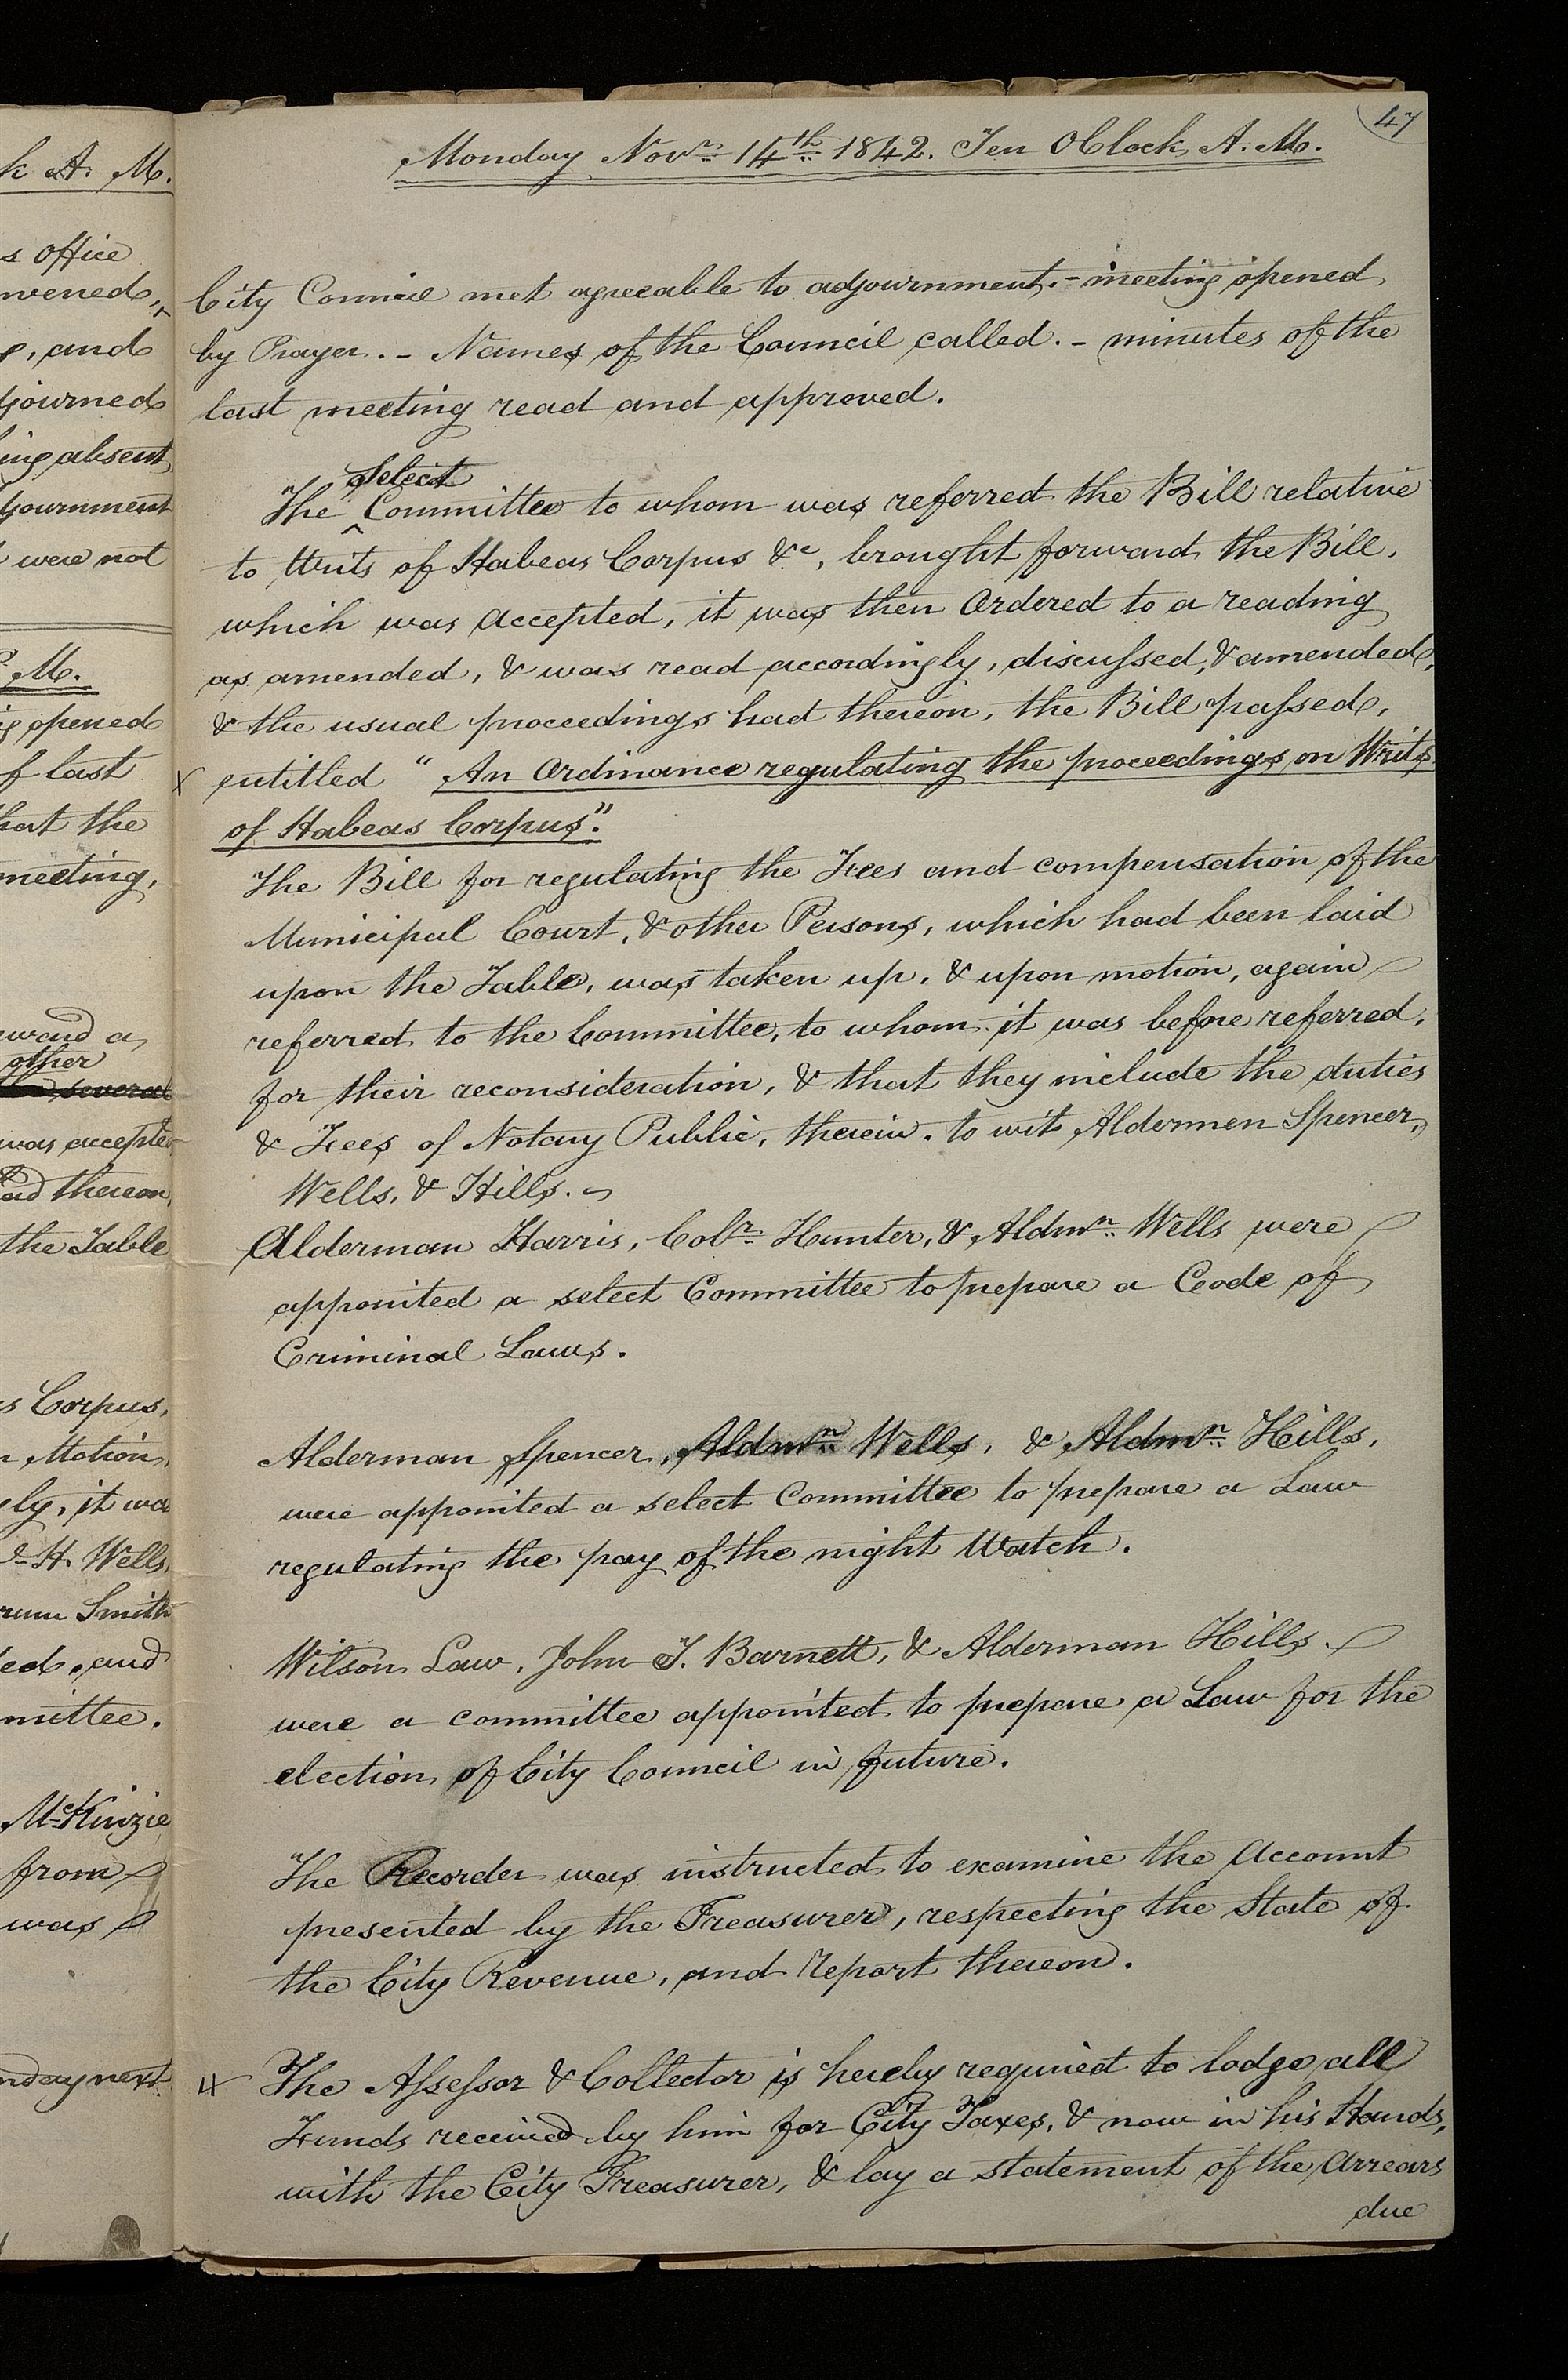 k A. M.
s office
nvened,
, and
djourned
ing absent
djournment
were not
P. M.
g opened
f last
hat the
meeting,
ward a
other
several
was accepted
had thereon,
the Table
s Corpus,
n Motion,
ly, it wa
H. Wells,
rum Smith
ed, and
mittee.
McKinzie
from
was
nday next
47
Monday Novr. 14th. 1842. Ten OClock, A. M.
City Council met agreeable to adjournment. - meeting opened
by Prayer. - Names of the Council called. - minutes of the
last meeting read and approved.
Select
The ^ Committee to whom was referred the Bill relative
to Writs of Habeas Corpus &c, brought forward the Bill,
which was accepted, it was then Ordered to a reading
as amended, & was read accordingly, discussed, & amended,
& the usual proceedings had thereon, the Bill passed,
X entitled "An Ordinance regulating the proceedings on Writs
of Habeas Corpus".
The Bill for regulating the Fees and compensation of the
Municipal Court, & other Persons, which had been laid
upon the Table, was taken up, & upon motion, again
referred to the Committee, to whom it was before referred,
for their reconsideration, & that they include the duties
& Fees of Notary Public, therein. to wit Aldermen Spencer,
Wells, & Hills.
Alderman Harris, Colr. Hunter, & Aldmn. Wells were
appointed a select Committee to prepare a Code of
Criminal Laws.
Alderman Spencer, Aldmn. Wells, & Aldmn. Hills,
were appointed a select Committee to prepare a Law
regulating the pay of the night Watch.
Wilson Law, John T. Barnett, & Alderman Hills.
were a committee appointed to prepare a Law for the
election of City Council in future.
The Recorder was instructed to examine the Account
presented by the Treasurer, respecting the State of
the City Revenue, and Report thereon.
X The Assessor & Collector is hereby required to lodge all
Funds received by him for City Taxes, & now in his Hands,
with the City Treasurer, & lay a statement of the Arrears
due